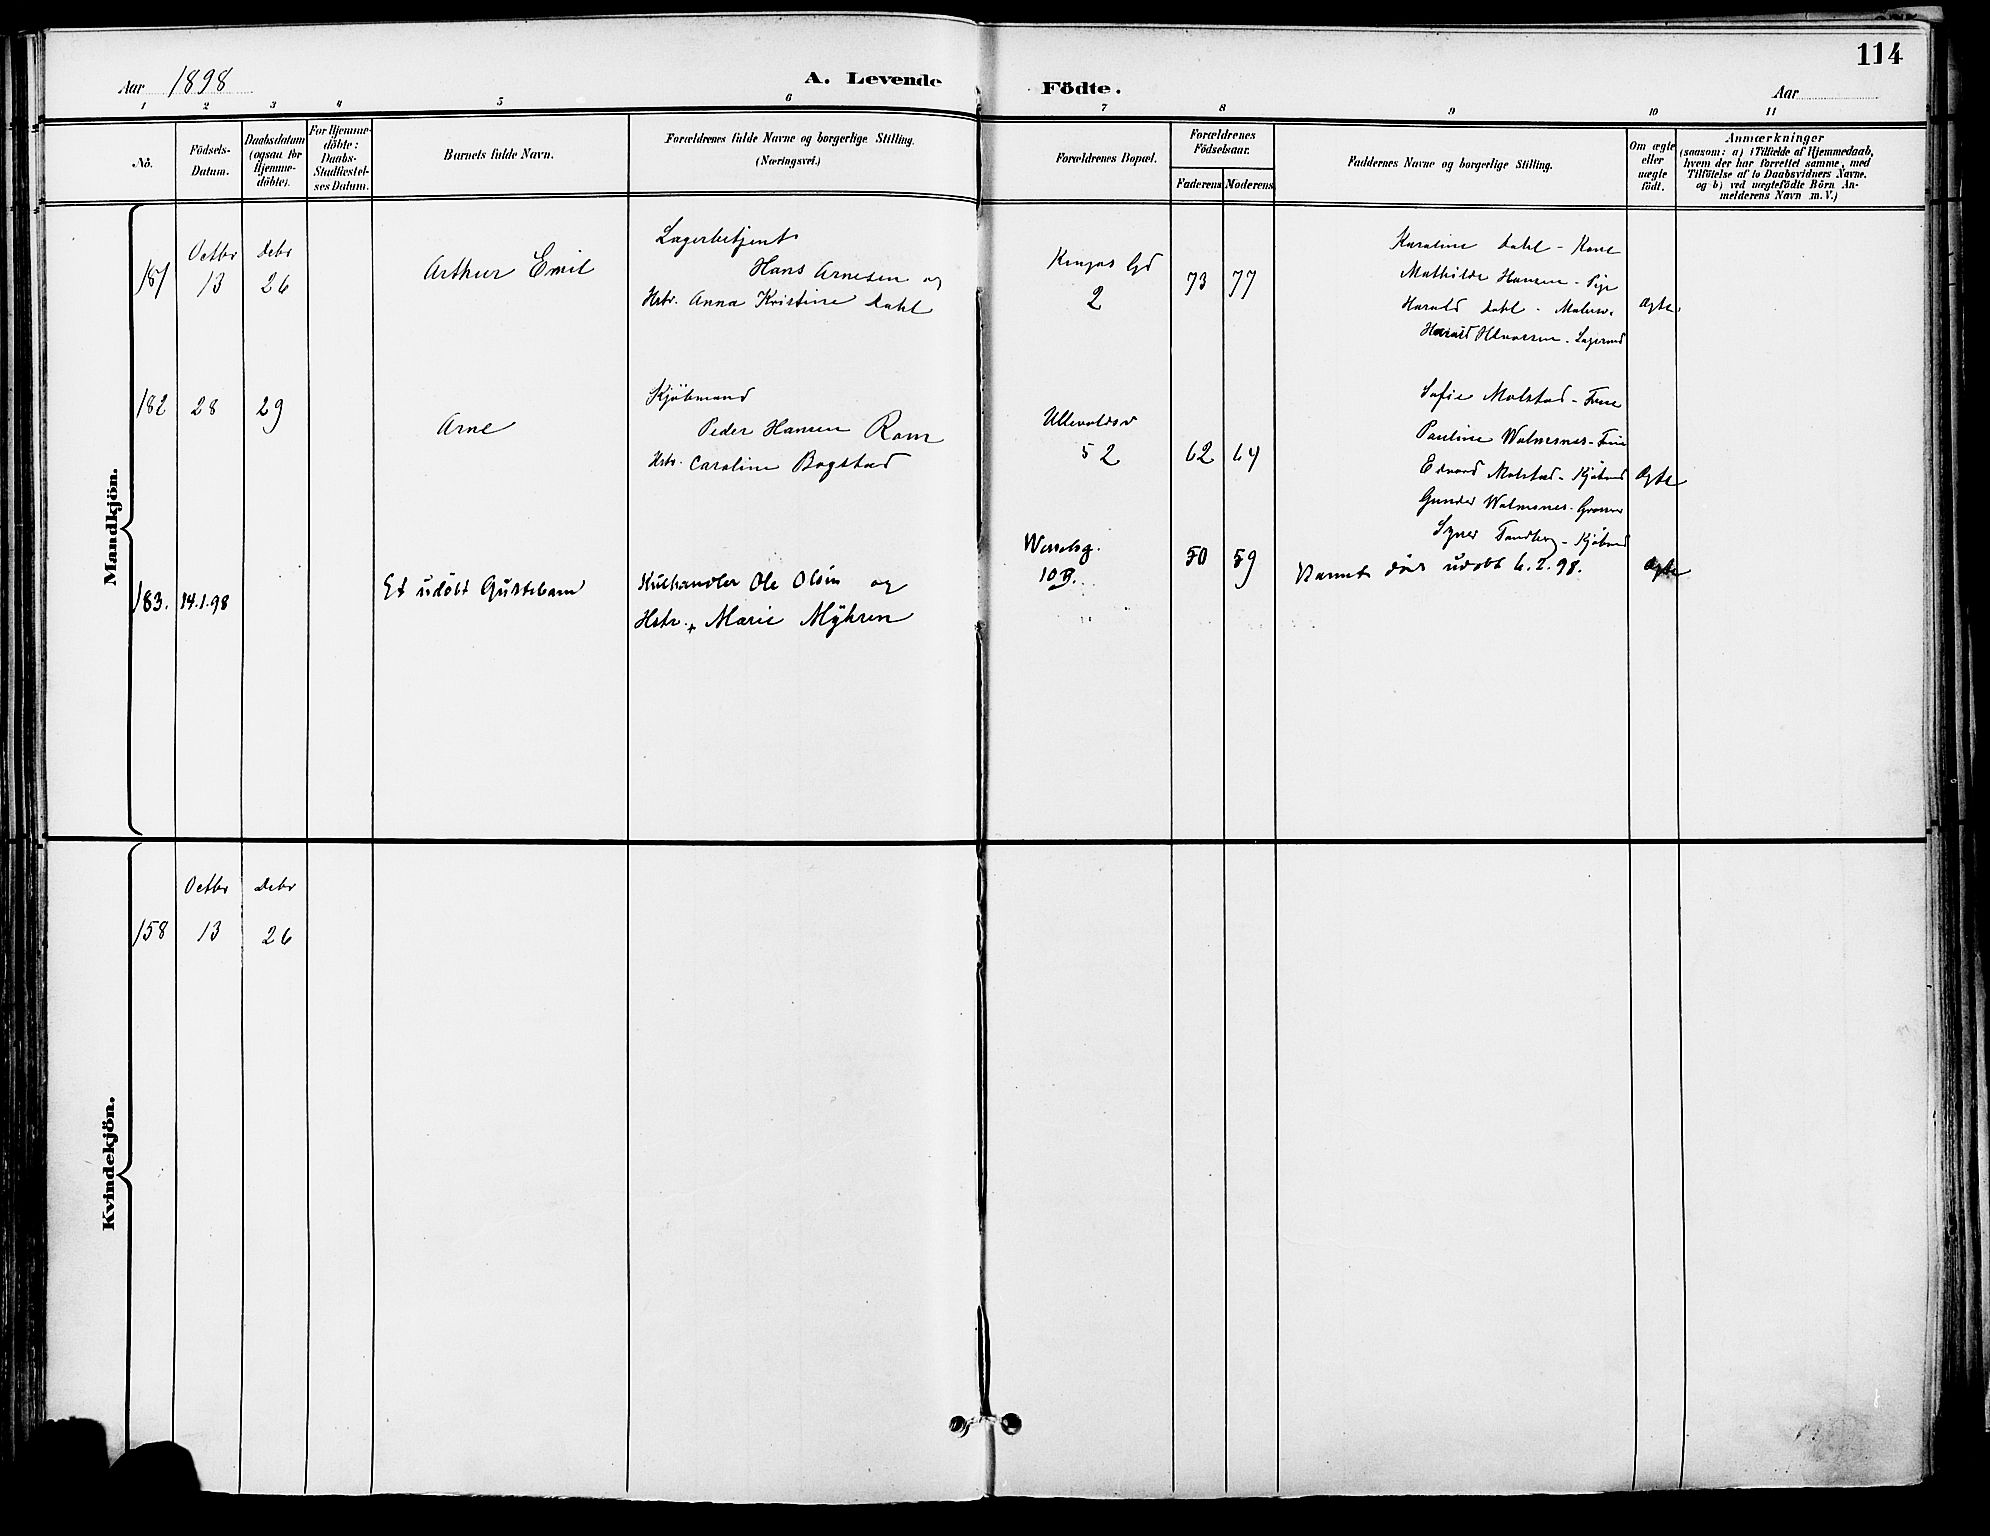 114
Aar 1898
A. Levende Födte.
Aar
1 2 3 4 5 6 7 8 9 10 11
No.
Födsels-
Datum.
Daabsdatum
(ogsaa for
Hjemme-
döbte).
For Hjemme-
döbte:
Daabs-
Stadfæstel-
ses Datum.
Barnets fulde Navn.
Forældrenes fulde Navne og borgerlige Stilling.
(Næringsvei.)
Forældrenes Bopæl.
Forældrenes
Födselsaar.
Faderens Moderens
Faddernes Navne og borgerlige Stilling.
Om ægte
eller
uægte
födt.
Anmærkninger
(saasom: a) i Tilfælde af Hjemmedaab,
hvem der har forrettet samme, med
Tilföielse af to Daabsvidners Navne.
og b) ved uægtefödte Börn An-
melderens Navn m.V.)
Mandkjön.
181
Octbr
13
Debr
26
Arthur Emil
Lagerbetjent
Hans Arnesen og
Hstr. Anna Kristine Dahl
2
73 77
Karoline Dahl - Kone
Mathilde Hansen - Pige
Harald Dahl - Malersv.
Harald
Ægte
182
28
29
Arne
Kjöbmand
Peder Hansen Rom
Hstr. Caroline Bogstad
Ullevoldsv
52
62 64
Sofie Molstad - Frue
Pauline Walmsnes - Frue
Edvard Molstad - Kjöbmd
Gunder Walmsnes - Grosser
Tandberg - Kjöbmd
Ægte
183.
14.1.98
Et udöbt Guttebarn
Kulhandler Ole Olsen og
Hstr. + Marie Myhren
Wesselsg.
10B.
50 59
Barnet döde udöbt 6.2.98.
Ægte
Kvindekjön.
158
Octbr
13
Debr
26